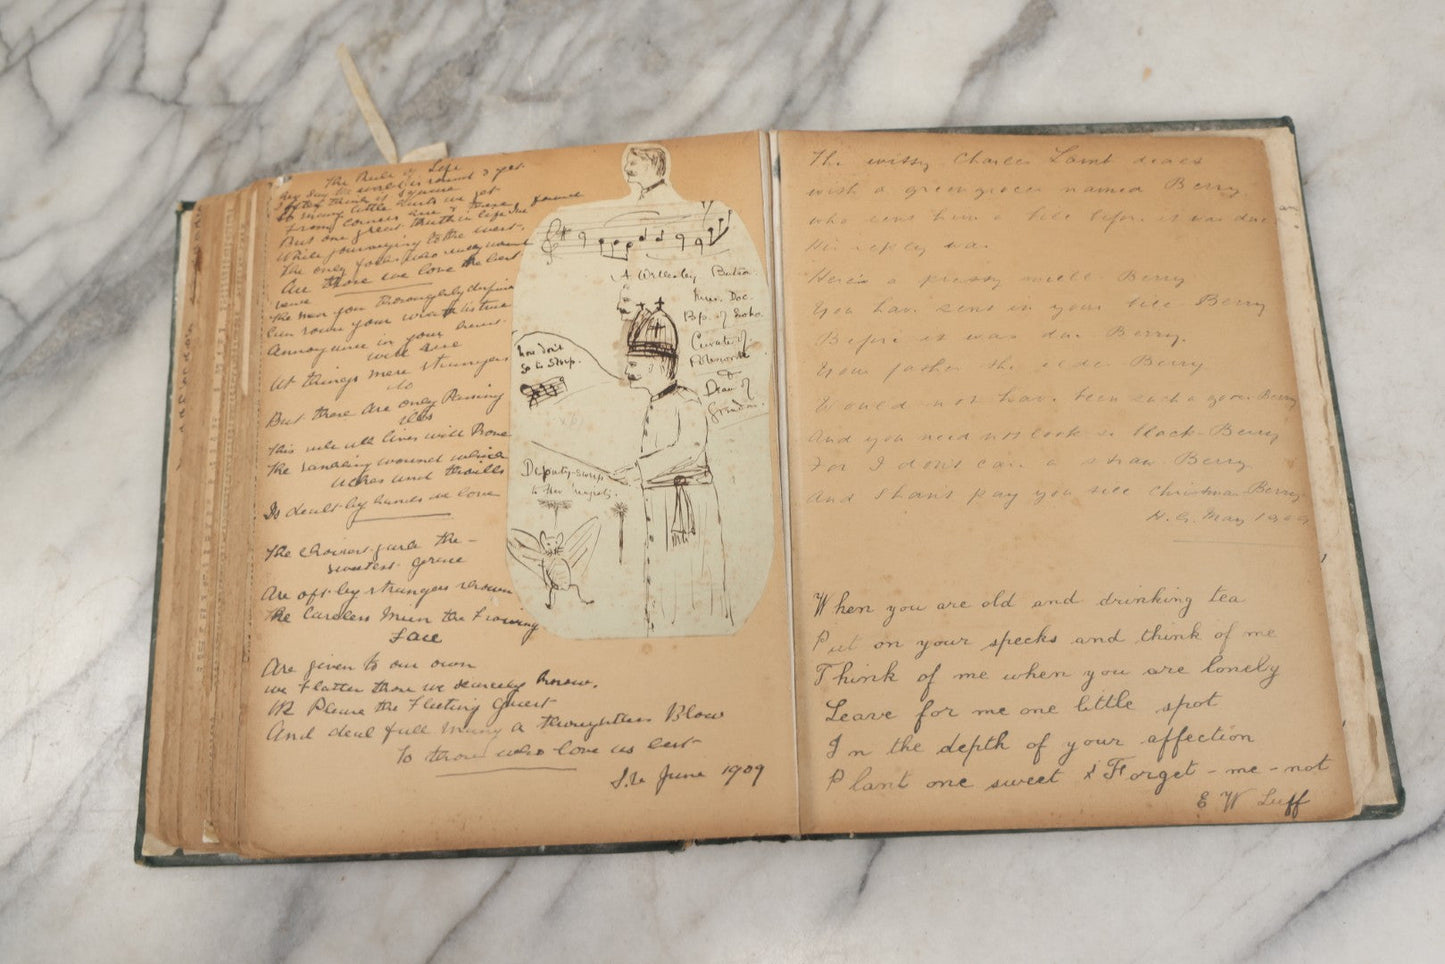 The Rule of Life
So many little darts we get
From corners here & there
But one great truth in life I've found
While journeying to the west,
The only folks who really wound
Are those we love the best
The man you thoroughly despise
Can rouse your wrath 'tis true
Annoyance in your heart
will rise
At things mere strangers
do
But those are only Passing
ills
This rule all lives will Prove
The rankling wound which
aches and thrills
Is dealt by hands we love
The choicest garb the -
sweetest grace
Are oft by strangers shown
The Careless Mien the Frowning
Face
Are given to our own
we Flatter those we scarcely know,
We Please the Fleeting Guest
And deal full many a thoughtless Blow
To those who love us best
June 1909
A Wellesley Butson
Mus. Doc.
Bp. of Soho.
Curate of
&
Dean of
You don't
go to sleep.
Deputy-
to the
The witty Charles Lamb deals
with a greengrocer named Berry,
who sent him a bill before it was due
His reply was
Here's a pretty mell Berry
You have sent in your bill Berry
Before it was due Berry.
Your father the elder Berry
Would not have been such a goose Berry
And you need not look so black-Berry
For I don't care a straw Berry
And I shan't pay you till Christmas Berry
H. G. May 1909
When you are old and drinking tea
Put on your specks and think of me
Think of me when you are lonely
Leave for me one little spot
In the depth of your affection
Plant one sweet & Forget-me-not
E W Luff